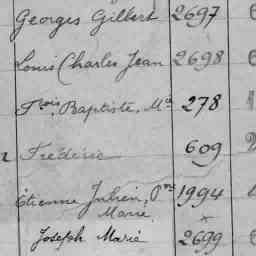 Georges Gilbert 2697
Louis Charles Jean 2698
Fois, Baptiste, Mie 278
Frédéric 609
Etienne Julien, Pre 1994
Marie, x
Joseph Marie 2699